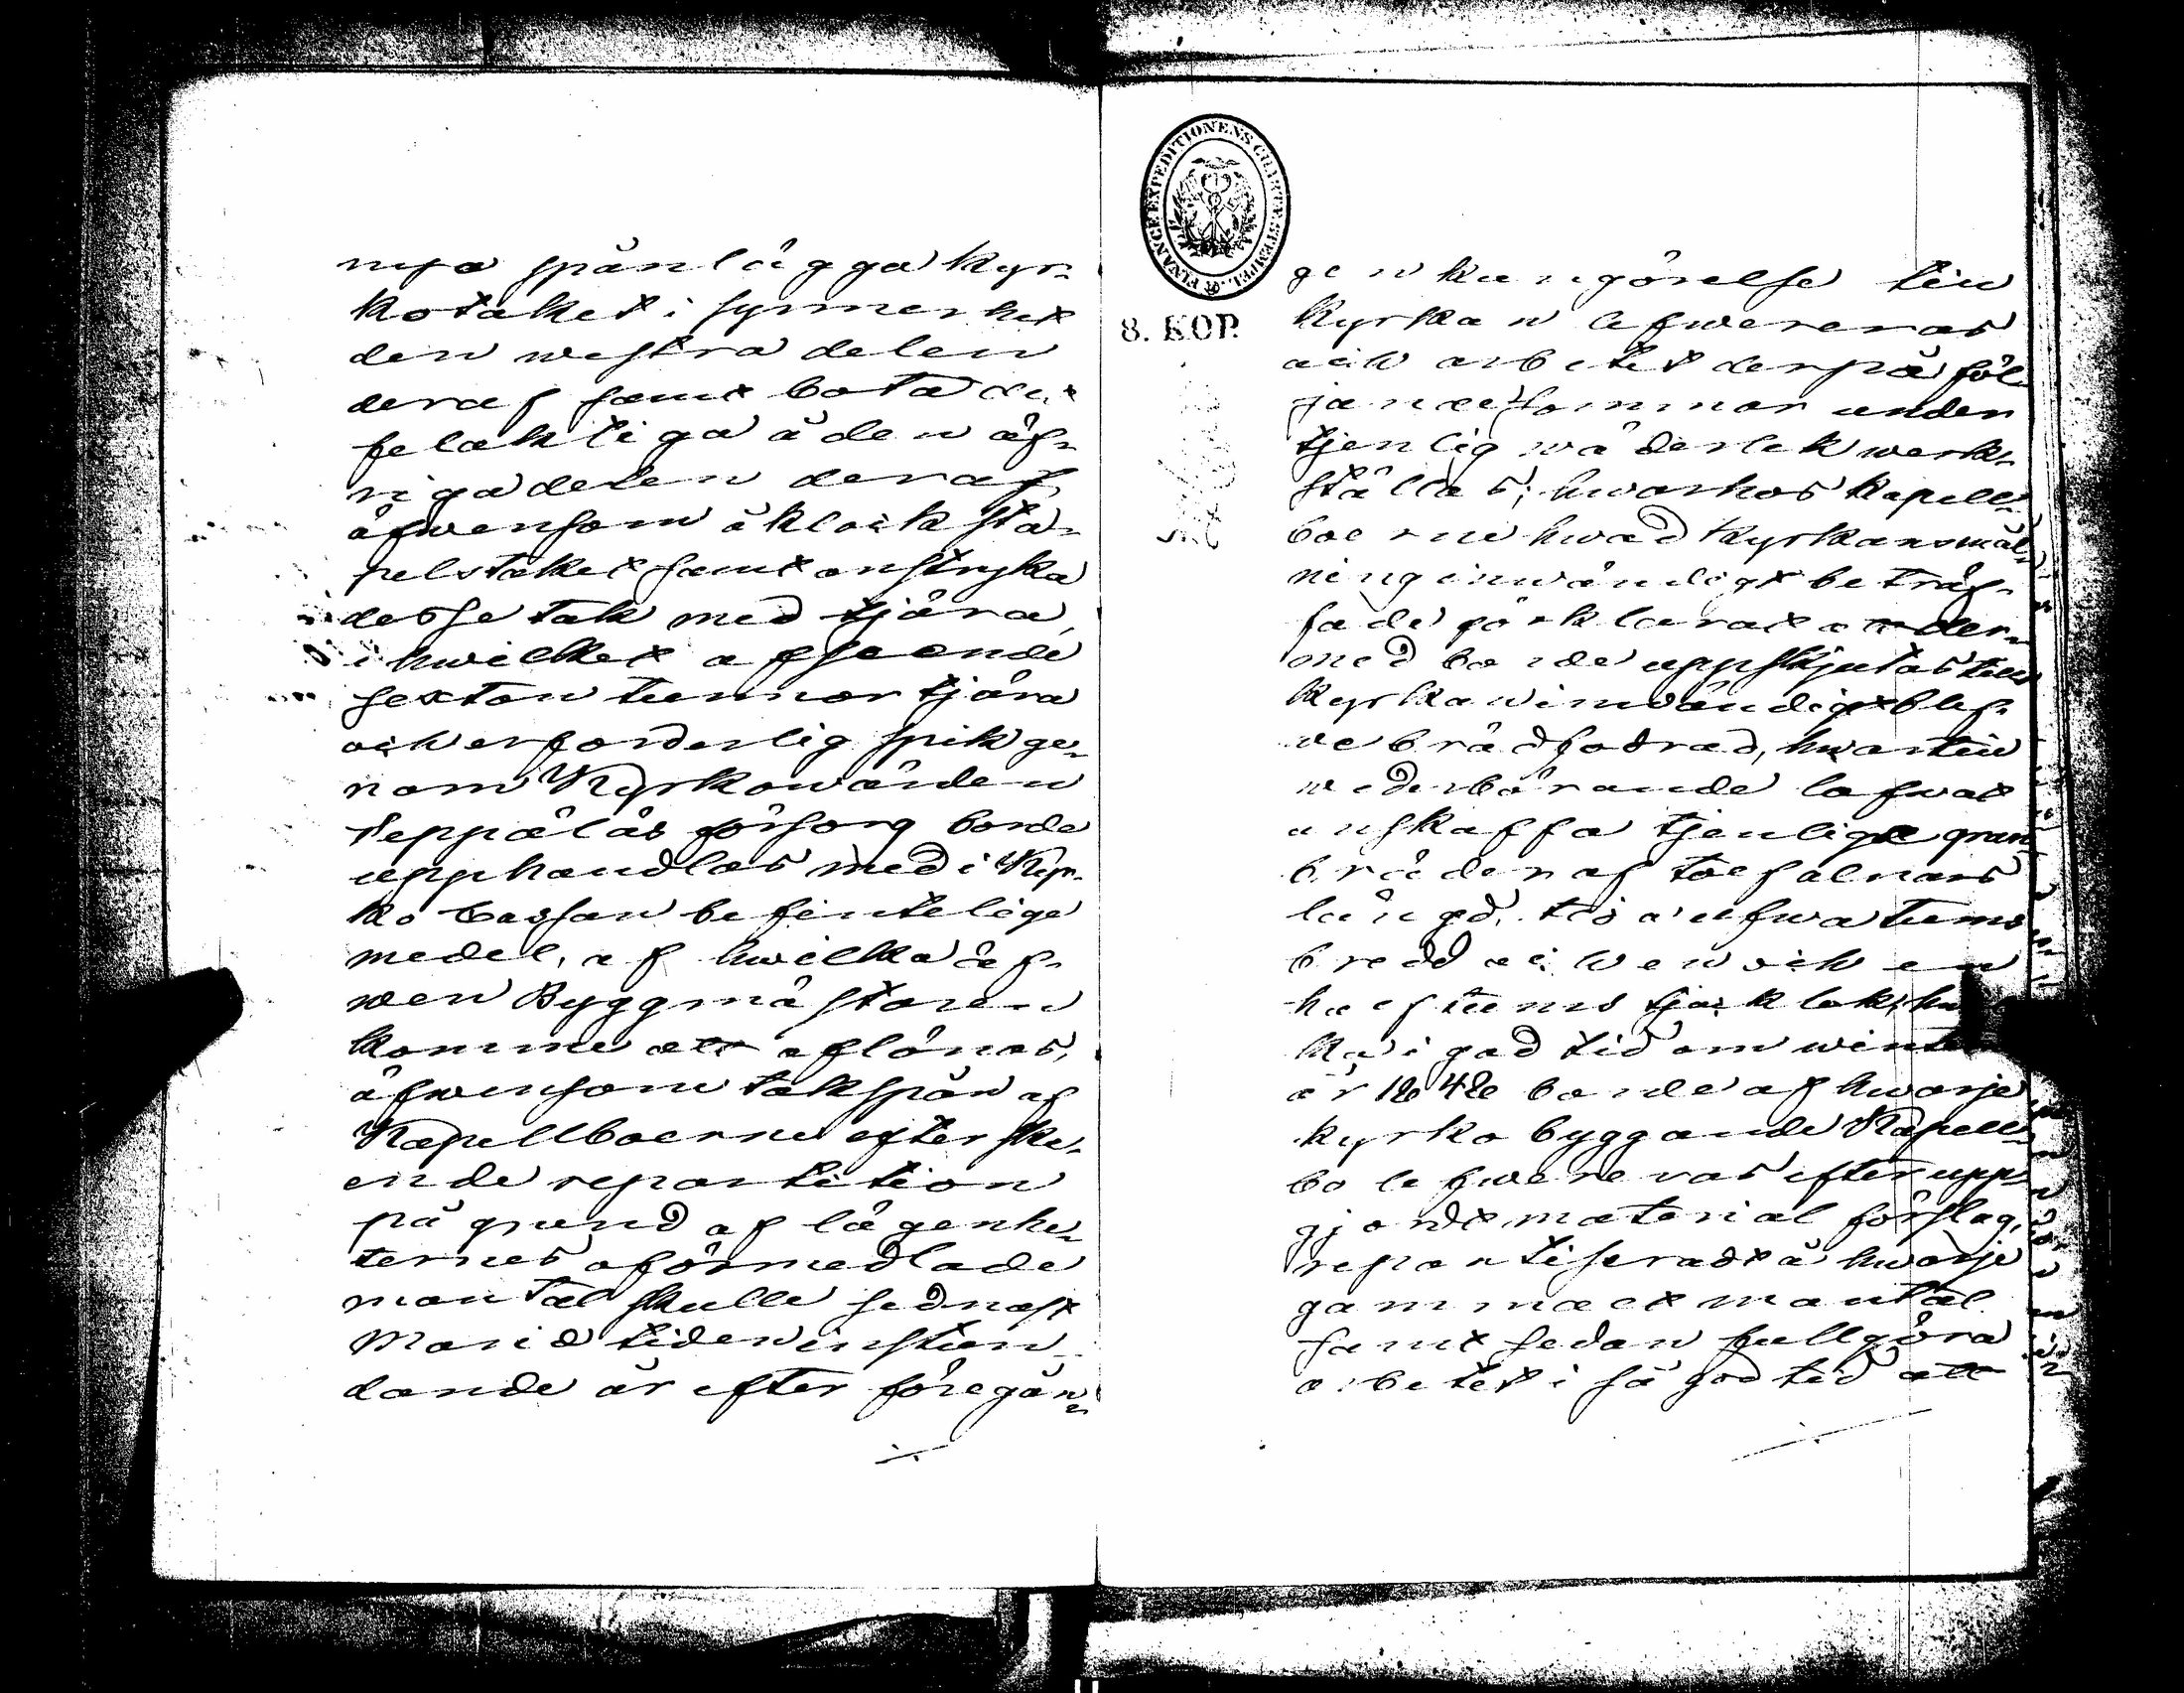 nya spånlägga kyr=
kotaket i synnerhet
den westra delen
deraf samt bota det
felaktiga å den öf=
riga delen deraf
äfwensom å klocksta=
pelstaket samt anstryka
desse tak med tjära,
i hwilket afseende
sexton tunnor tjära
och erforderlig spik ge=
nom Kyrkowärden
Seppäläs försorg borde
upphandlas med i Kyr=
ko Cassan befintelige
medel, af hwilka äf=
wen Byggmästaren
komme att aflönas,
äfwensom takspån af
Kapellboerne efter ske=
ende repartition
på grund af lägenhe=
ternes oförmedlade
mantal skulle sednast
Marié tiden instun=
dande år efter föregån=
FINANCEEXPEDITIONENS CHARTÆ STEMPEL
8. KOP.
gen kungörelse till
Kyrkan lefwereras
och arbetet derpå föl=
jande sommar under
tjenlig wäderlek werk=
ställas; hwarhos Kapell=
boerne hwad Kyrkans mål=
ning inwändigt beträf=
fade förklarat att der=
med borde uppskjutas till
kyrkan inwändigt blef=
we brädfodrad, hwartill
wederbörande lofwat
anskaffa tjenlige gran
bräder af toe falnars
längd, tio a elfwa tums
bredd och en
half tums tjocklek,
ka i god tid om
år 1848 borde af hwarje
kyrko byggande Kapell=
bo lefwereras efter upp=
gjordt material förslag,
repartiseradt å hwarje
gammalt mantal
samt sedan fullgöra
arbetet i så god tid att